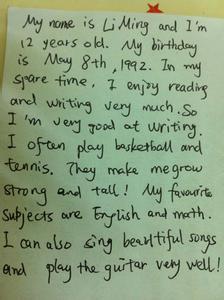 My name is Li Ming and I'm
12 years old. My birthday
is May 8th, 1992. In my
spare time, I enjoy reading
and writing very much. So
I'm very good at writing.
I often play basketball and
tennis. They make me grow
strong and tall! My favourite
subjects are English and math.
I can also sing beautiful songs
and play the guitar very well!